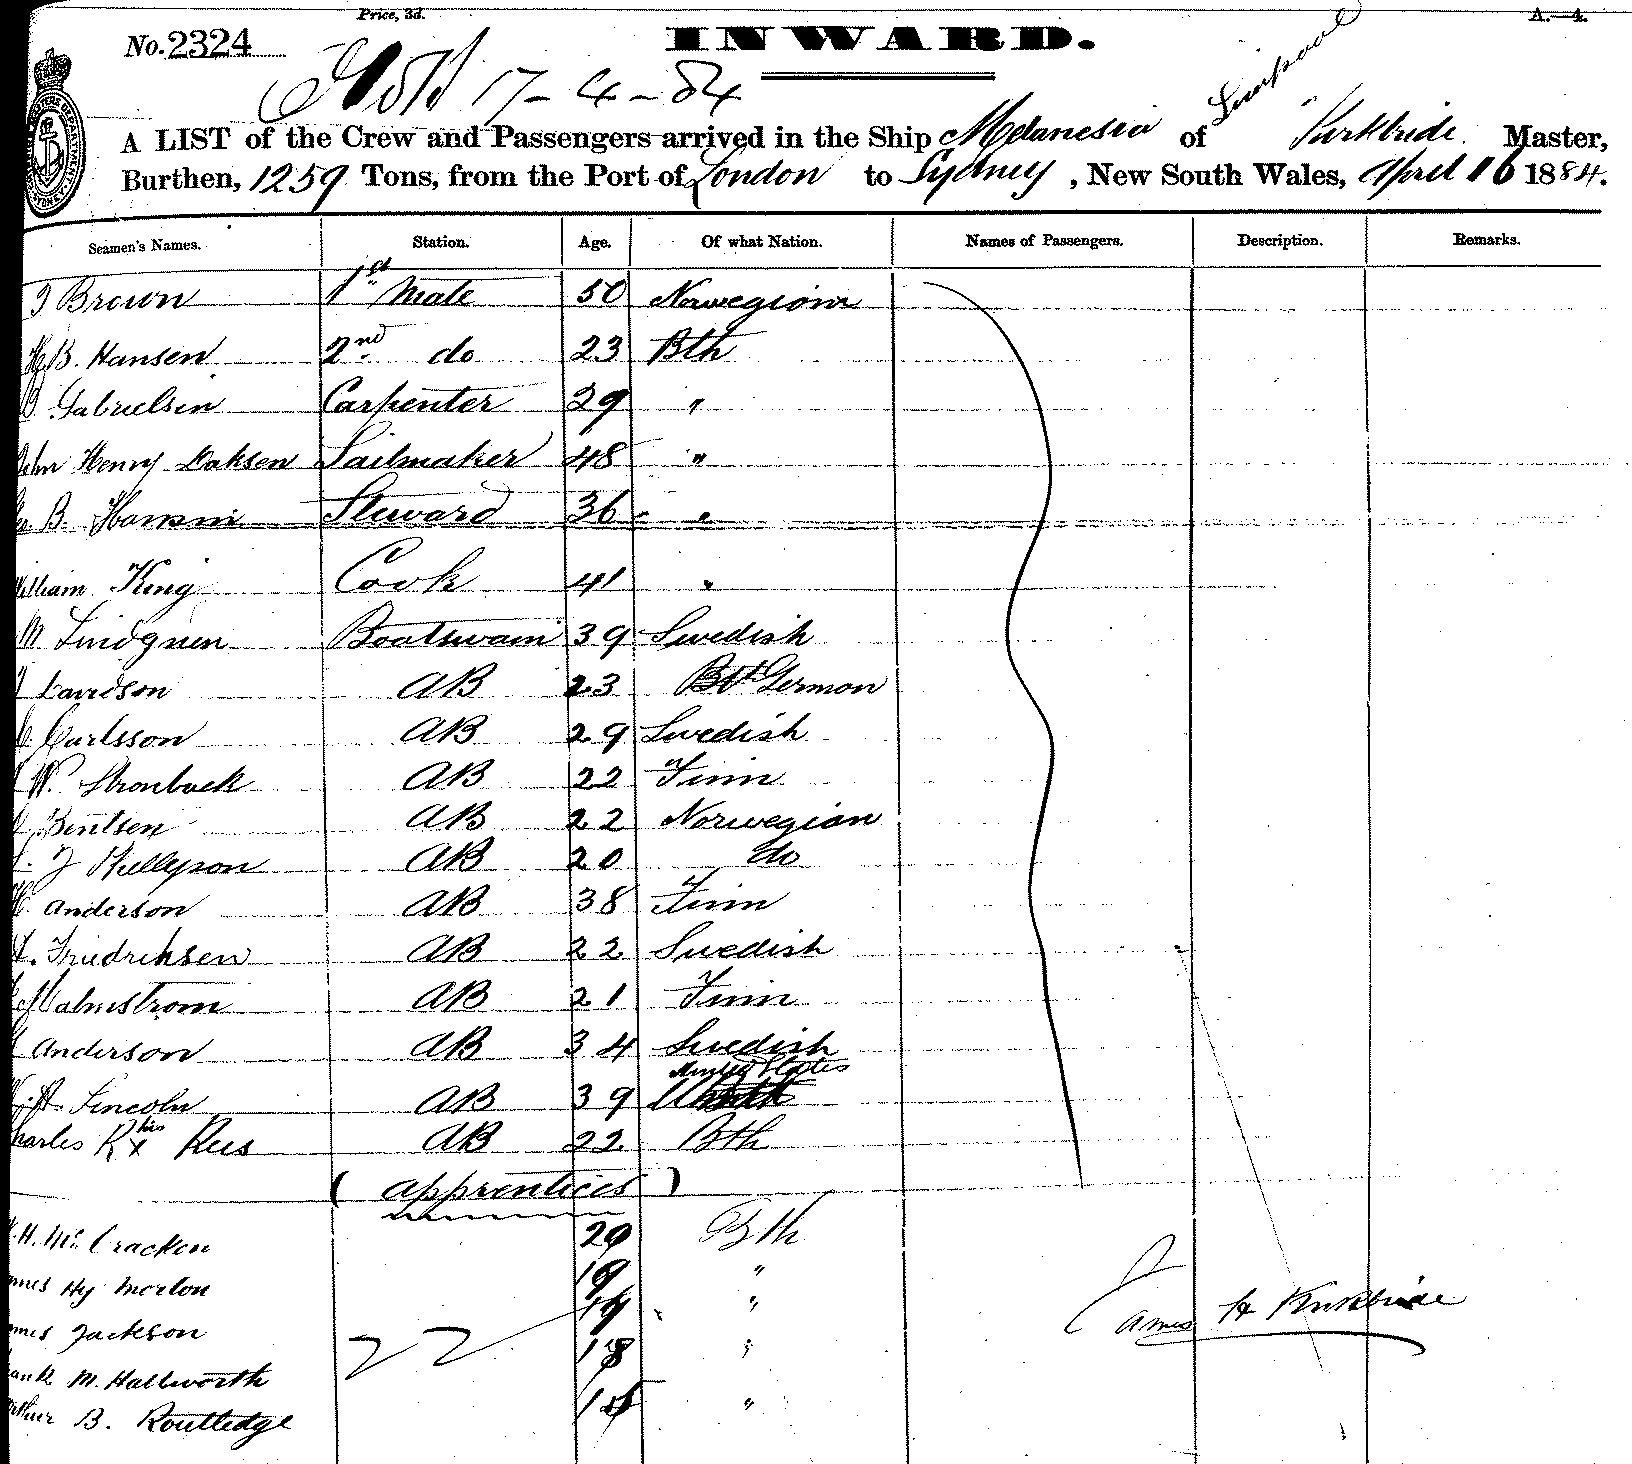 Price, 3d.
A.—4.
No. 2324
INWARD.
17-4-84
Liverpool
A LIST of the Crew and Passengers arrived in the Ship Melanesia of Kirkbride Master,
Burthen, 1259 Tons, from the Port of London to Sydney, New South Wales, April 16 1884.
Seamen's Names. Station. Age. Of what Nation. Names of Passengers. Description. Remarks.
Brown 1st Mate 50 Norwegian
B. Hansen 2nd do 23 Bth
Gabrielsen Carpenter 29 "
John Henry Sailmaker 48 "
B. Steward 36 "
William King Cook 41 "
M Boatswain 39 Swedish
Davidson AB 23 German
Carlsson AB 29 Swedish
W. AB 22 Finn
Bentsen AB 22 Norwegian
AB 20 do
Anderson AB 38 Finn
Fredriksen AB 22 Swedish
Malmstrom AB 21 Finn
Anderson AB 34 Swedish
United States
Lincoln AB 39
Charles R his x Rees AB 22 Bth
(Apprentices)
H. McCracken Bth
James Hy Morton 19 "
James Jackson "
Frank M. Hallworth 18 "
Arthur B. Routledge "
22
James H Kirkbride